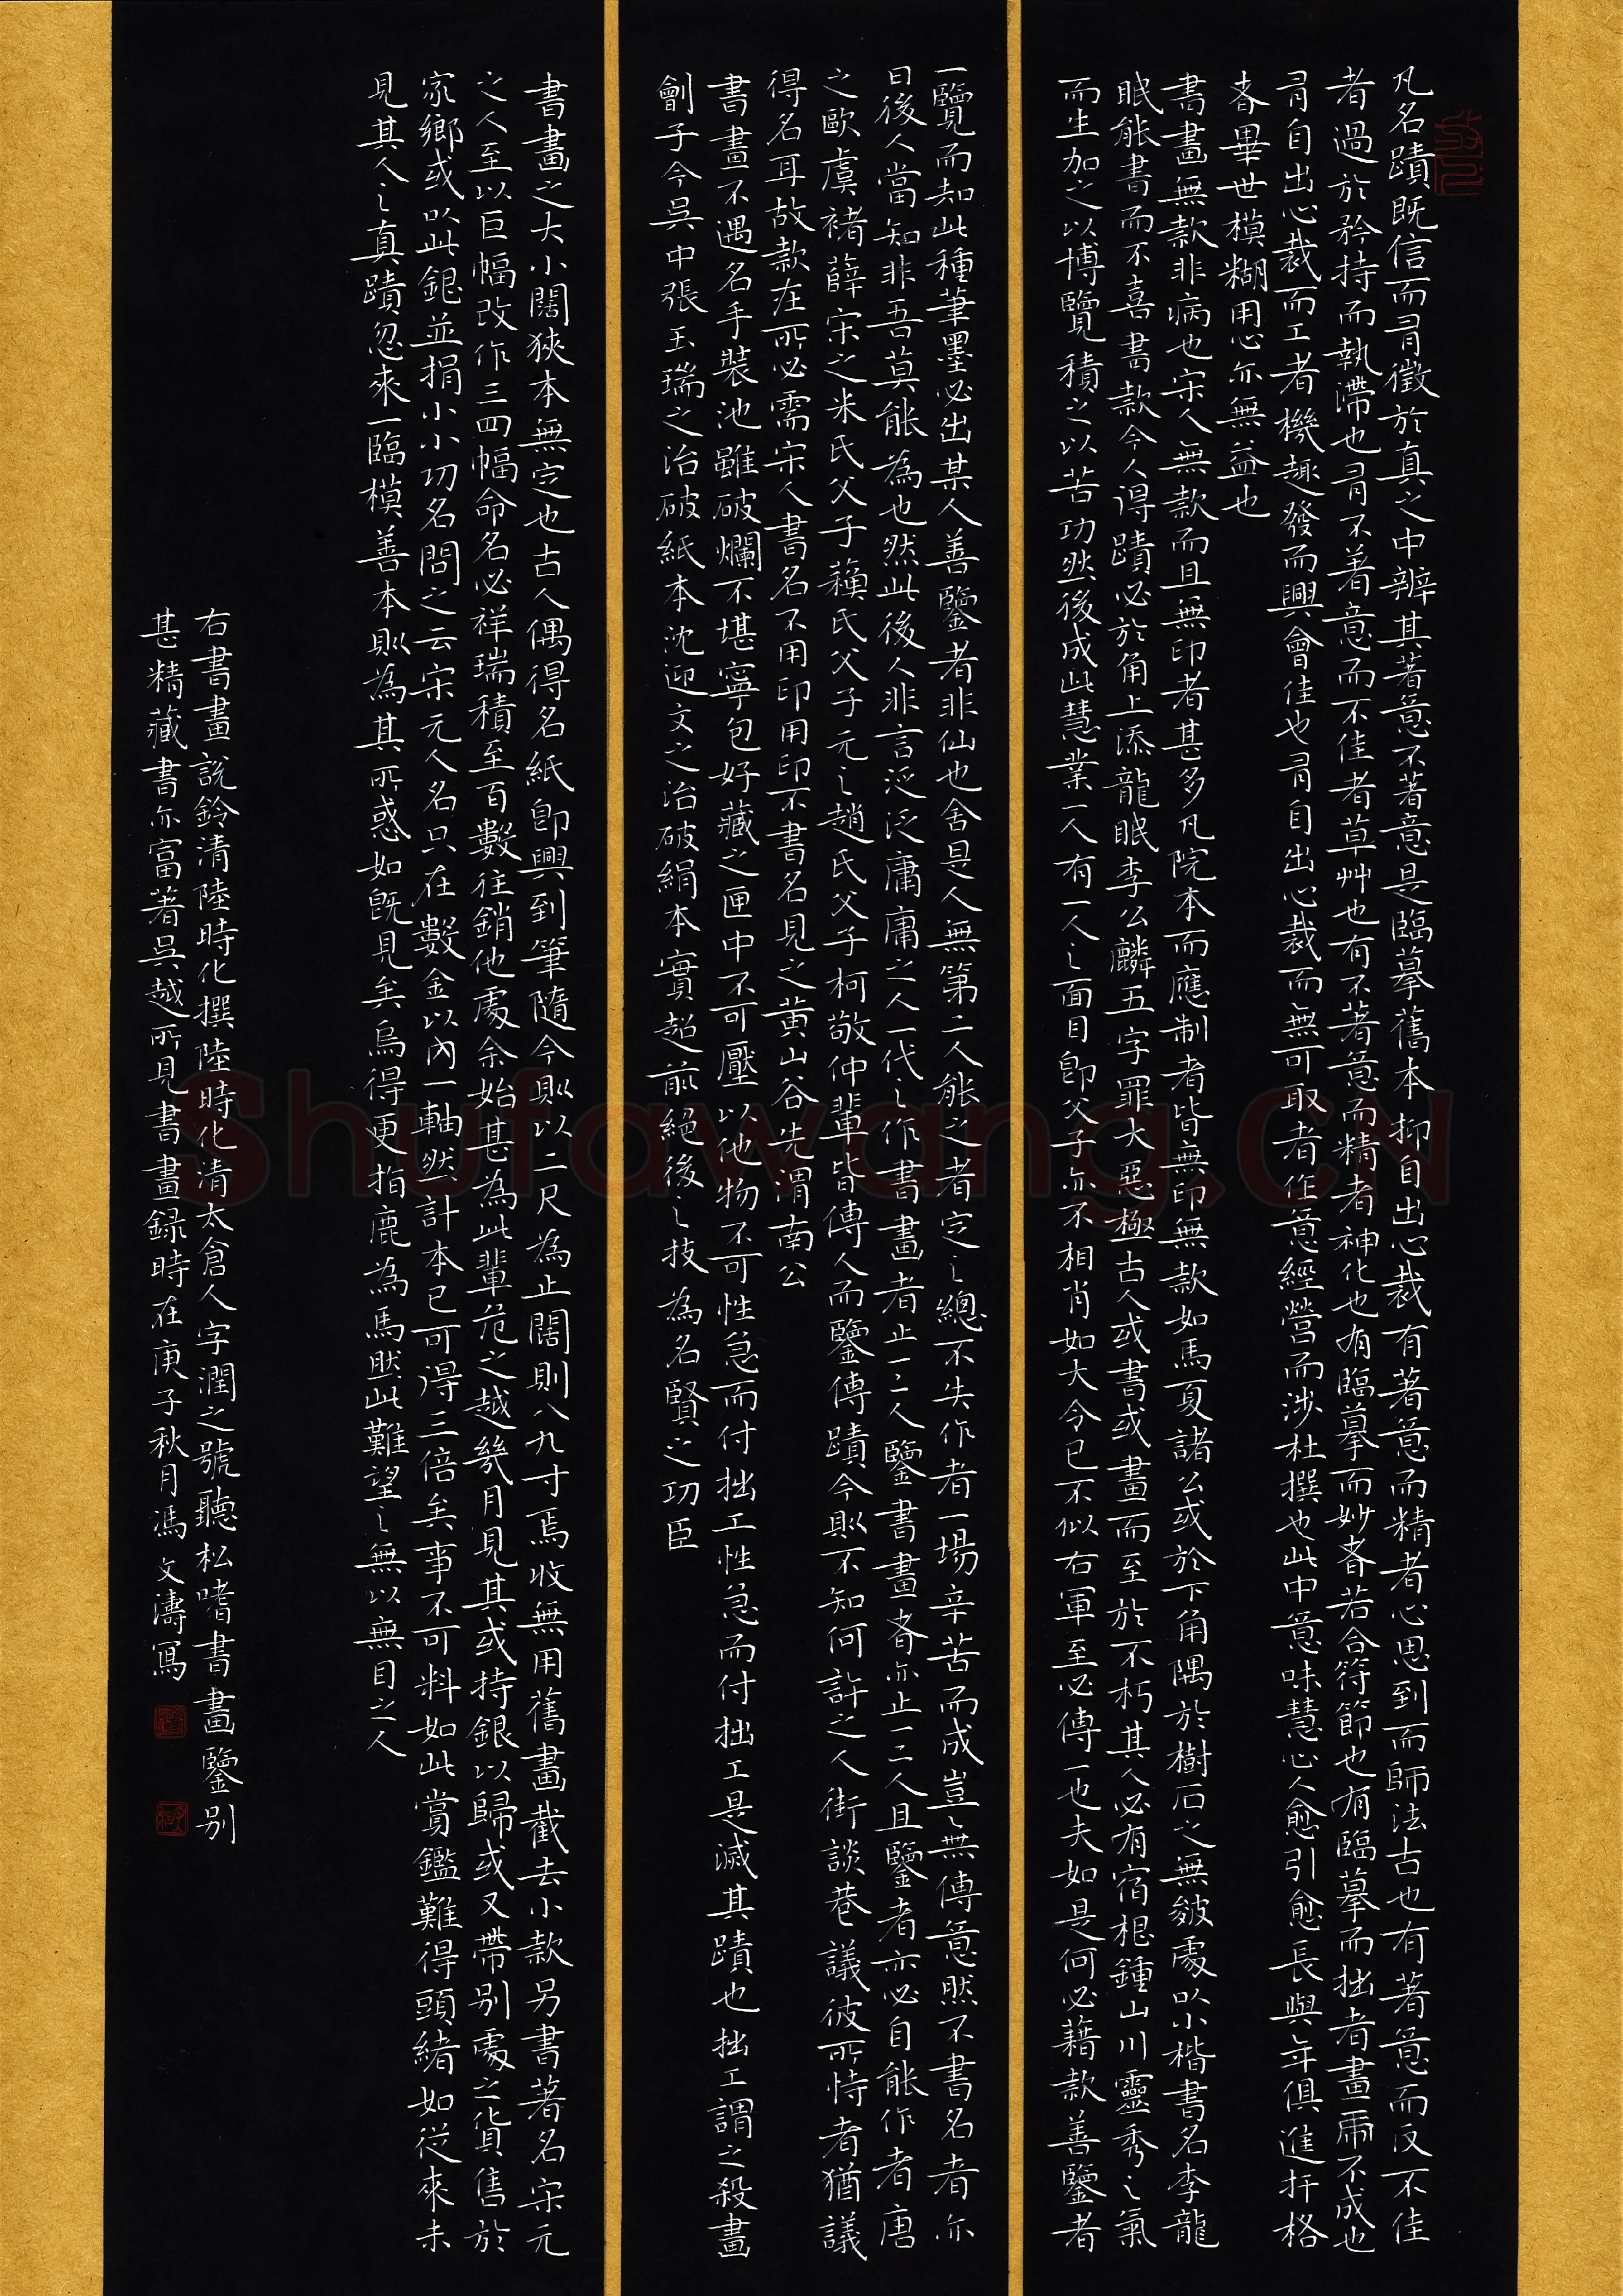 凡名蹟既信而有徵於真之中辨其著意不著意是臨摹舊本抑自出心裁有著意而精者心思到而師法古也有著意而反不佳
者過於矜持而執滯也有不著意而不佳者草艸也有不著意而精者神化也有臨摹而妙者若合符節也有臨摹而拙者畫虎不成也
有自出心裁而工者機趣發而興會佳也有自出心裁而無可取者任意經營而涉杜撰也此中意味慧心人愈引愈長與年俱進扞格
者畢世模糊用心亦無益也
書畫無款非病也宋人無款而且無印者甚多凡院本而應制者皆無印無款如馬夏諸公或於下角隅於樹石之無皴處以小楷書名李龍
眠能書而不喜書款今人得蹟必於角上添龍眠李公麟五字罪大惡極古人或書或畫而至於不朽其人必有宿根鍾山川靈秀之氣
而生加之以博覽積之以苦功然後成此慧業一人有一人之面目即父子亦不相肖如大令已不似右軍至必傳一也夫如是何必藉款善鑒者
一覽而知此種筆墨必出某人善鑒者非仙也舍是人無第二人能之者定之總不失作者一場辛苦而成豈豈無傳意然不書名者亦
曰後人當知非吾莫能為也然此後人非言泛泛庸庸之人一代之作書畫者止一二人鑒書畫者亦止一二人且鑒者亦必自能作者唐
之歐虞褚薛宋之米氏父子蘇氏父子元之趙氏父子柯敬仲輩皆傳人而鑒傳蹟今則不知何許之人街談巷議彼所恃者猶議
得名耳故款在所必需宋人書名不用印用印不書名見之黃山谷先謂南公
書畫不遇名手裝池雖破爛不堪寧包好藏之匣中不可壓以他物不可性急而付拙工性急而付拙工是滅其蹟也拙工謂之殺畫
劊子今吳中張玉瑞之治破紙本沈迎文之治破絹本實超前絕後之技為名賢之功臣
書畫之大小闊狹本無定也古人偶得名紙即興到筆隨今則以二尺為止闊則八九寸焉收無用舊畫截去小款另書著名宋元
之人至以巨幅改作三四幅命名必祥瑞積至百數往銷他處余始甚為此輩危之越幾月見其或持銀以歸或又帶別處之貨售於
家鄉或以此銀並捐小小功名問之云宋元人名只在數金以內一軸然計本已可得三倍矣事不可料如此賞鑑難得頭緒如從來未
見其人之真蹟忽來一臨模善本則為其所惑如既見矣烏得更指鹿為馬然此難望之無以無目之人
右書畫說鈴清陸時化撰陸時化清太倉人字潤之號聽松嗜書畫鑒別
甚精藏書亦富著吳越所見書畫錄時在庚子秋月馮文濤寫
Shufawang.CN